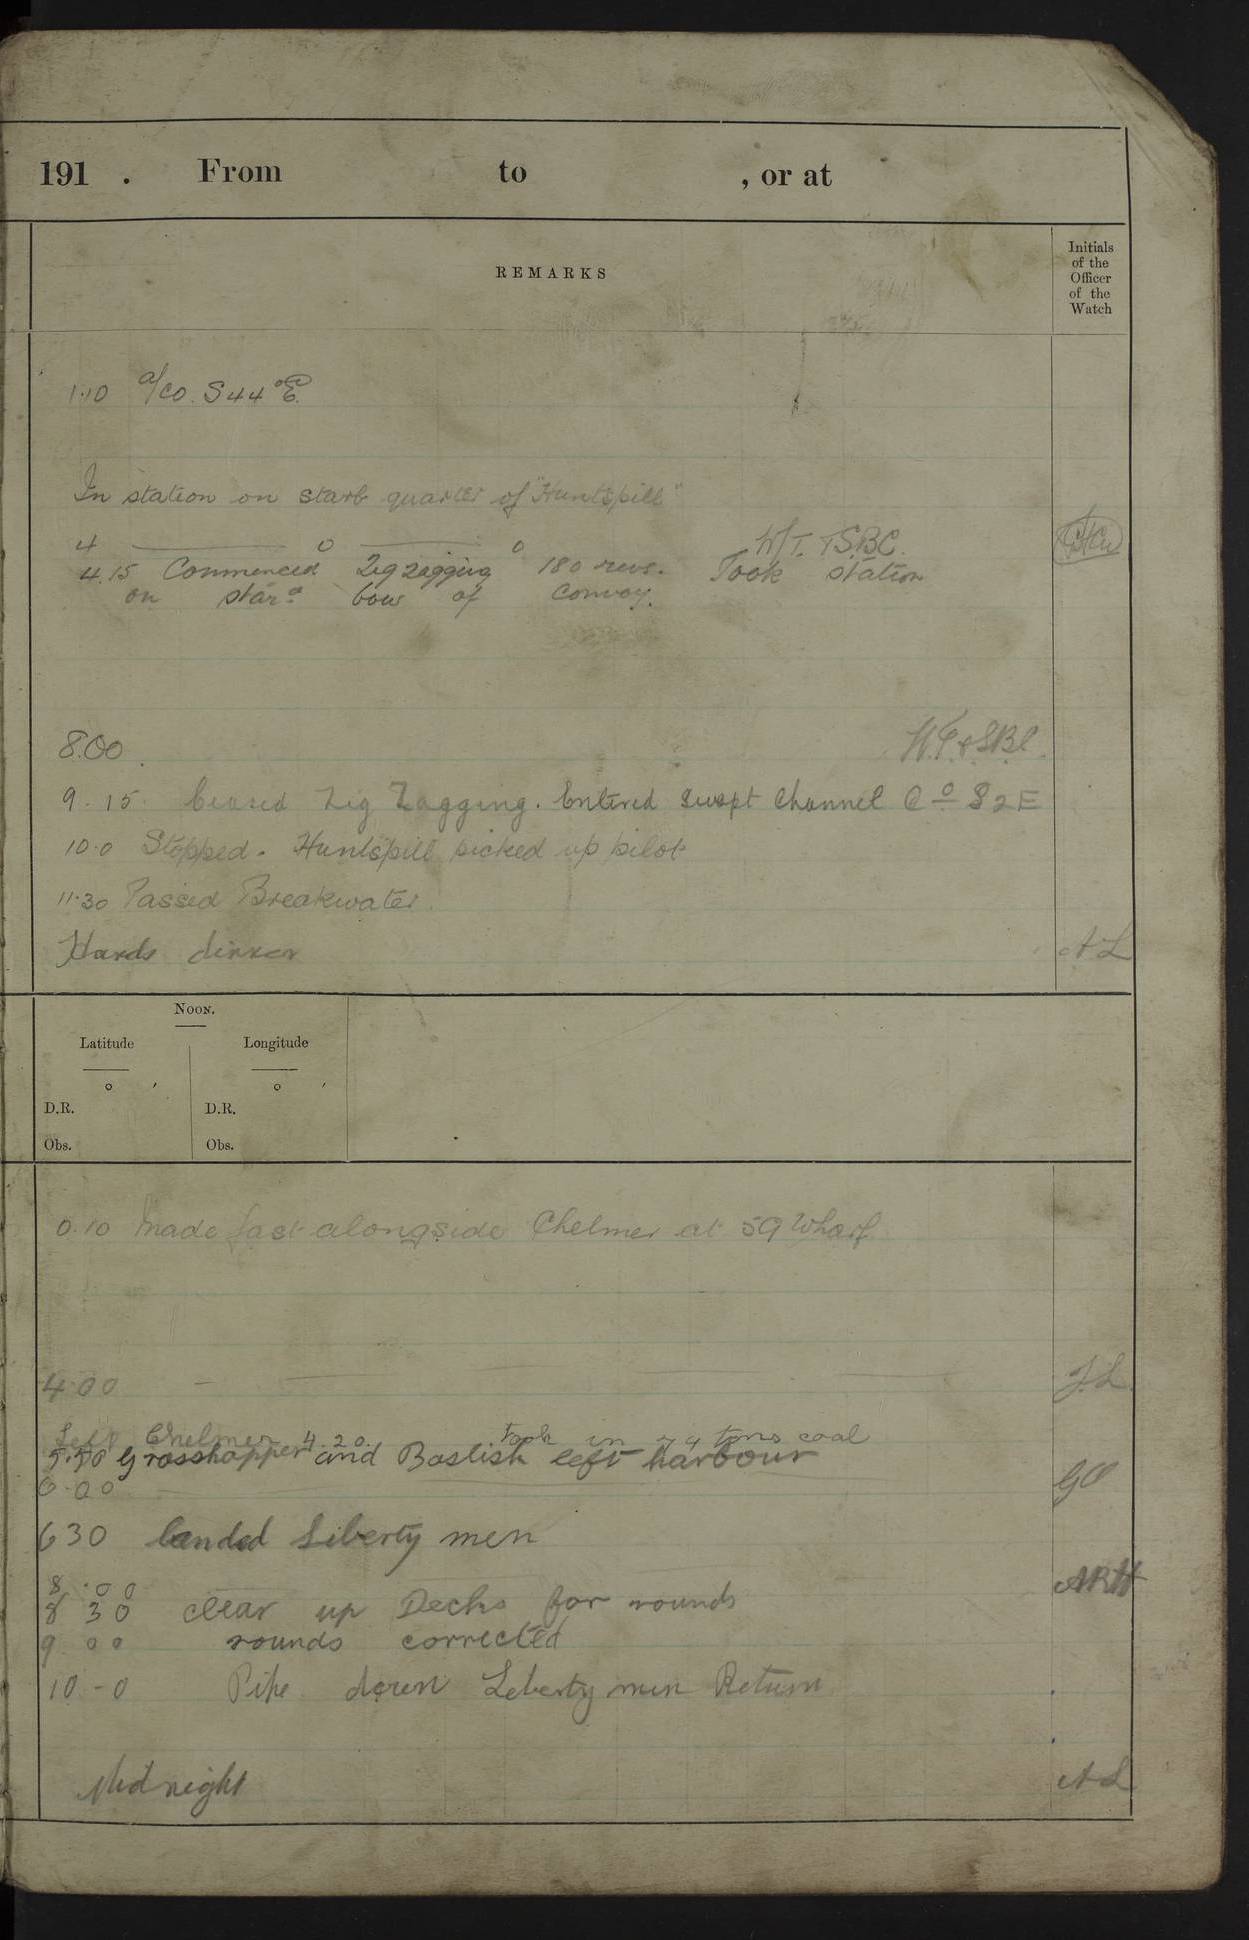 191 . From to , or at
REMARKS
Initials
of the
Officer
of the
Watch
1.10 a/co. S44°E
In station on starb quarter of "Huntspill"
4 o o W/T. TSBC.
4.15 Commenced Zig zagging 180 revs. Took station
on starᵈ bow of Convoy.
8.00 W.T. & SBC.
9.15. Ceased Zig Zagging. Entered swept Channel Co S2E
10.0 Stopped. Huntspill picked up pilot
11.30 Passed Breakwater.
Hands dinner AL
NOON.
Latitude Longitude
o ′ o ′
D.R. D.R.
Obs. Obs.
0.10 Made fast alongside Chelmer at 59 Wharf
4.00 J.L.
Left Chelmer 4.20. Took in 74 tons coal
5.50 Grasshopper and Baslisk left harbour
6.00 GO
630 landed Liberty men
8.00 ARH
8 30 clear up Decks for rounds
9 00 rounds corrected
10-0 Pipe down Leberty men Return
Midnight AL